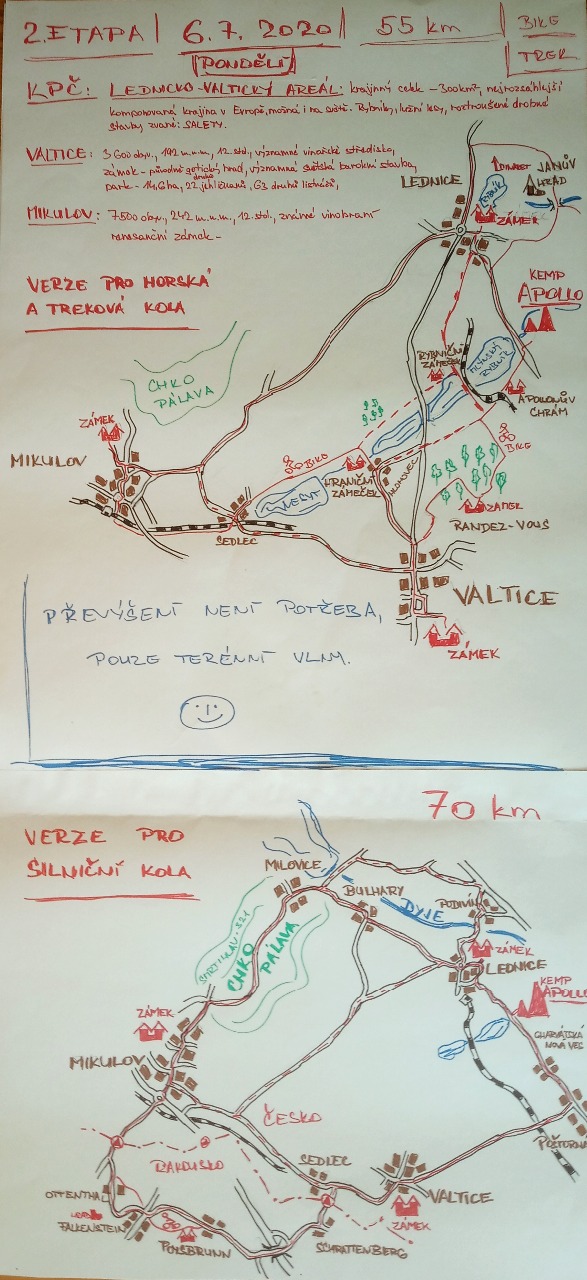 2. ETAPA | 6.7.2020 | 55 km | BIKE
PONDĚLÍ TREK
KPČ: LEDNICKO-VALTICKÝ AREÁL: krajinný celek - 300km², nejrozsáhlejší
komponovaná krajina v Evropě, možná i na světě. Rybníky, lužní lesy, roztroušené drobné
stavby zvané: SALETY.
VALTICE: 3 600 obyv., 192 m.n.m., 12. stol., významné vinařské středisko,
zámek - původně gotický hrad, významná světská barokní stavba,
park - 14,6ha, 22 druhů jehličnanů, 63 druhů listnáčů,
MIKULOV: 7500 obyv., 242 m.n.m., 12. stol., známé vinobraní
renesanční zámek -
LEDNICE
RYBNÍK
MINARET
JANŮV
HRAD
ZÁMEK
VERZE PRO HORSKÁ
A TREKOVÁ KOLA
KEMP
APOLLO
CHKO
PÁLAVA
RYBNIČNÍ
ZÁMEČEK
MLÝNSKÝ
RYBNÍK
APOLLONŮV
CHRÁM
ZÁMEK
MIKULOV
BIKE
HRANIČNÍ
ZÁMEČEK
HLOHOVEC
BIKE
NESYT
SEDLEC
ZÁMEK
RANDEZ-VOUS
VALTICE
ZÁMEK
PŘEVÝŠENÍ NENÍ POTŘEBA,
POUZE TERÉNNÍ VLNY.
70 km
VERZE PRO
SILNIČNÍ KOLA
MILOVICE
BULHARY
DYJE
PODIVÍN
CHKO
PÁLAVA
ZÁMEK
LEDNICE
KEMP
APOLLO
CHARVÁTSKÁ
NOVÁ VES
ZÁMEK
MIKULOV
POŠTORNÁ
ČESKO
RAKOUSKO
SEDLEC
VALTICE
ZÁMEK
OTTENTHAL
FALKENSTEIN
POYSBRUNN
SCHRATTENBERG